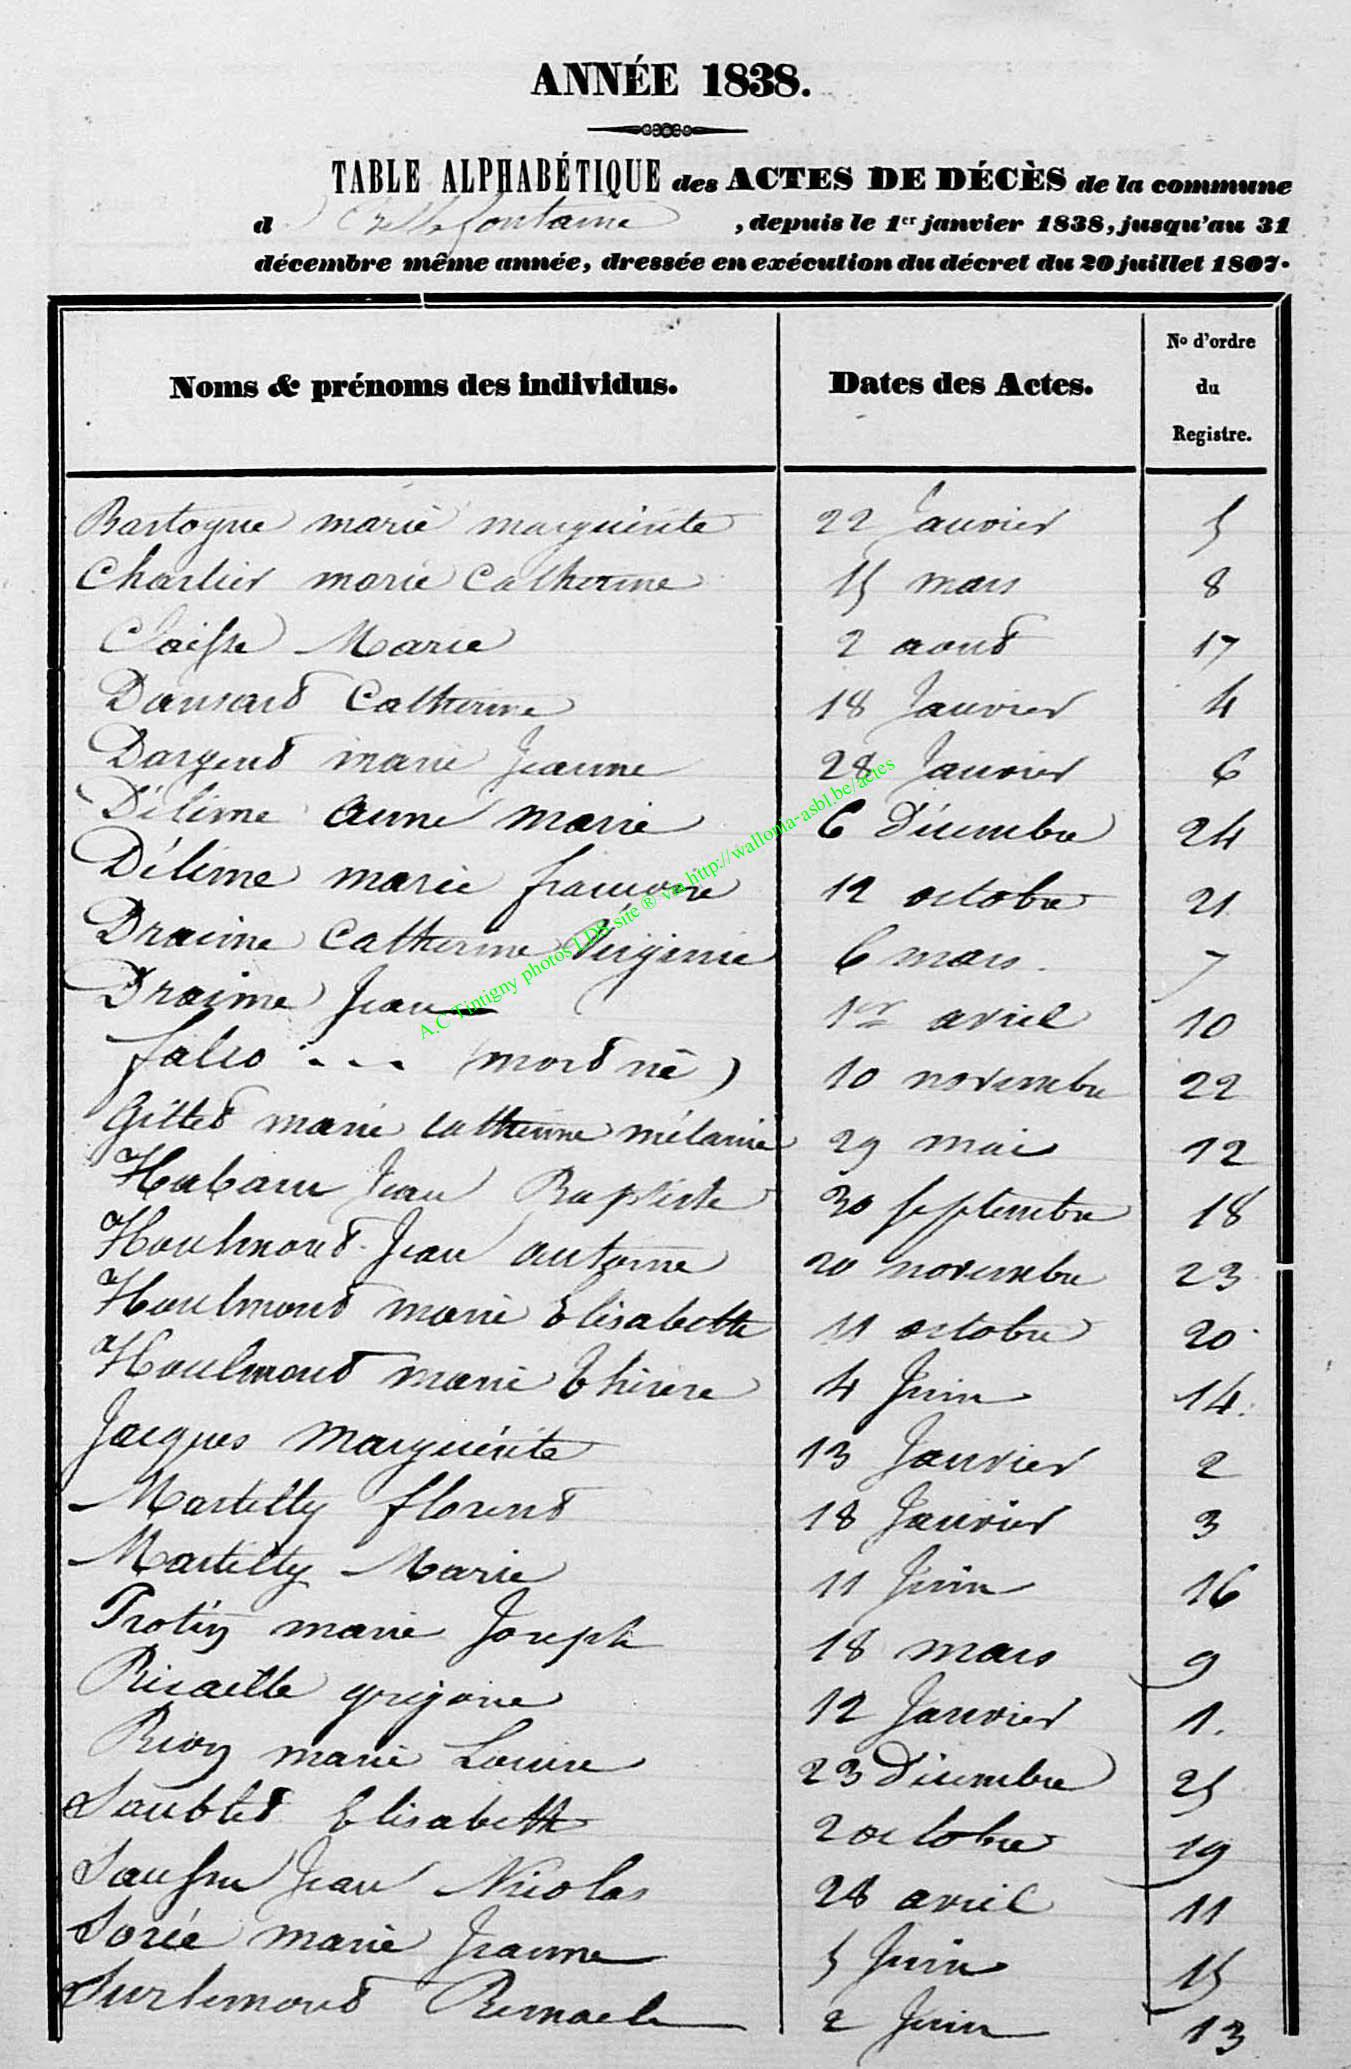 ANNÉE 1838.
TABLE ALPHABÉTIQUE des ACTES DE DÉCÈS de la commune
d Bellefontaine , depuis le 1er janvier 1838, jusqu'au 31
décembre même année, dressée en exécution du décret du 20 juillet 1807.
Noms & prénoms des individus. Dates des Actes. No d'ordre du Registre.
Bastogne marie marguerite 22 Janvier 5
Charlier marie Catherine 15 mars 8
Claisse Marie 2 aout 17
Dansard Catherine 18 Janvier 4
Dargent marie Jeanne 28 Janvier 6
Délime anne marie 6 décembre 24
Délime marie françoise 12 octobre 21
Draime Catherine Virginie 6 mars 7
Draime Jean 1er avril 10
falco . . . (mort né) 10 novembre 22
Gillet marie catherine mélanie 29 mai 12
Habaru Jean Baptiste 30 septembre 18
Houlmont Jean antoine 20 novembre 23
Houlmont marie Elisabeth 11 octobre 20
Houlmont marie thérèse 4 Juin 14
Jacques Marguérite 13 Janvier 2
Martilly florent 18 Janvier 3
Martilly Marie 11 Juin 16
Protin marie Joseph 18 mars 9
Ricaille grégoire 12 Janvier 1.
Rion marie Louise 23 décembre 25
Saublet Elisabeth 2 octobre 19
Jean Nicolas 28 avril 11
Sorée marie Jeanne 5 Juin 15
Surlemont Remacle 2 Juin 13
A.C Tintigny photos LDS site ® via http://wallonia-asbl.be/actes